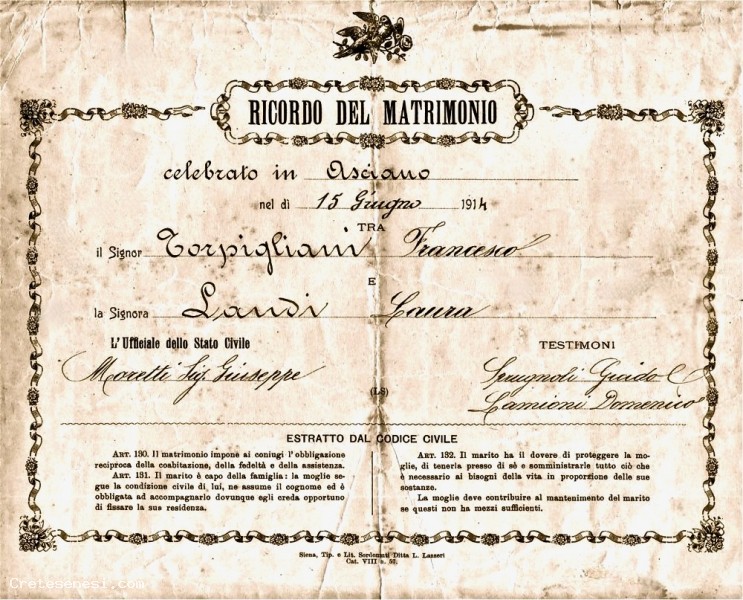 RICORDO DEL MATRIMONIO
celebrato in Asciano
nel dì 15 Giugno 1914
TRA
il Signor Torpigliani Francesco
E
la Signora Landi Laura
L'Ufficiale dello Stato Civile
TESTIMONI
Moretti Sig. Giuseppe
Spugnoli Guido
(LS)
Lamioni Domenico
ESTRATTO DAL CODICE CIVILE
ART. 130. Il matrimonio impone ai coniugi l'obbligazione
reciproca della coabitazione, della fedeltà e della assistenza.
ART. 131. Il marito è capo della famiglia: la moglie se-
gue la condizione civile di lui, ne assume il cognome ed è
obbligata ad accompagnarlo dovunque egli creda opportuno
di fissare la sua residenza.
ART. 132. Il marito ha il dovere di proteggere la mo-
glie, di tenerla presso di sè e somministrarle tutto ciò che
è necessario ai bisogni della vita in proporzione delle sue
sostanze.
La moglie deve contribuire al mantenimento del marito
se questi non ha mezzi sufficienti.
Siena, Tip. e Lit. Sordomuti Ditta L. Lazzeri
Cat. VIII n. 52.
Cretesenesi.com